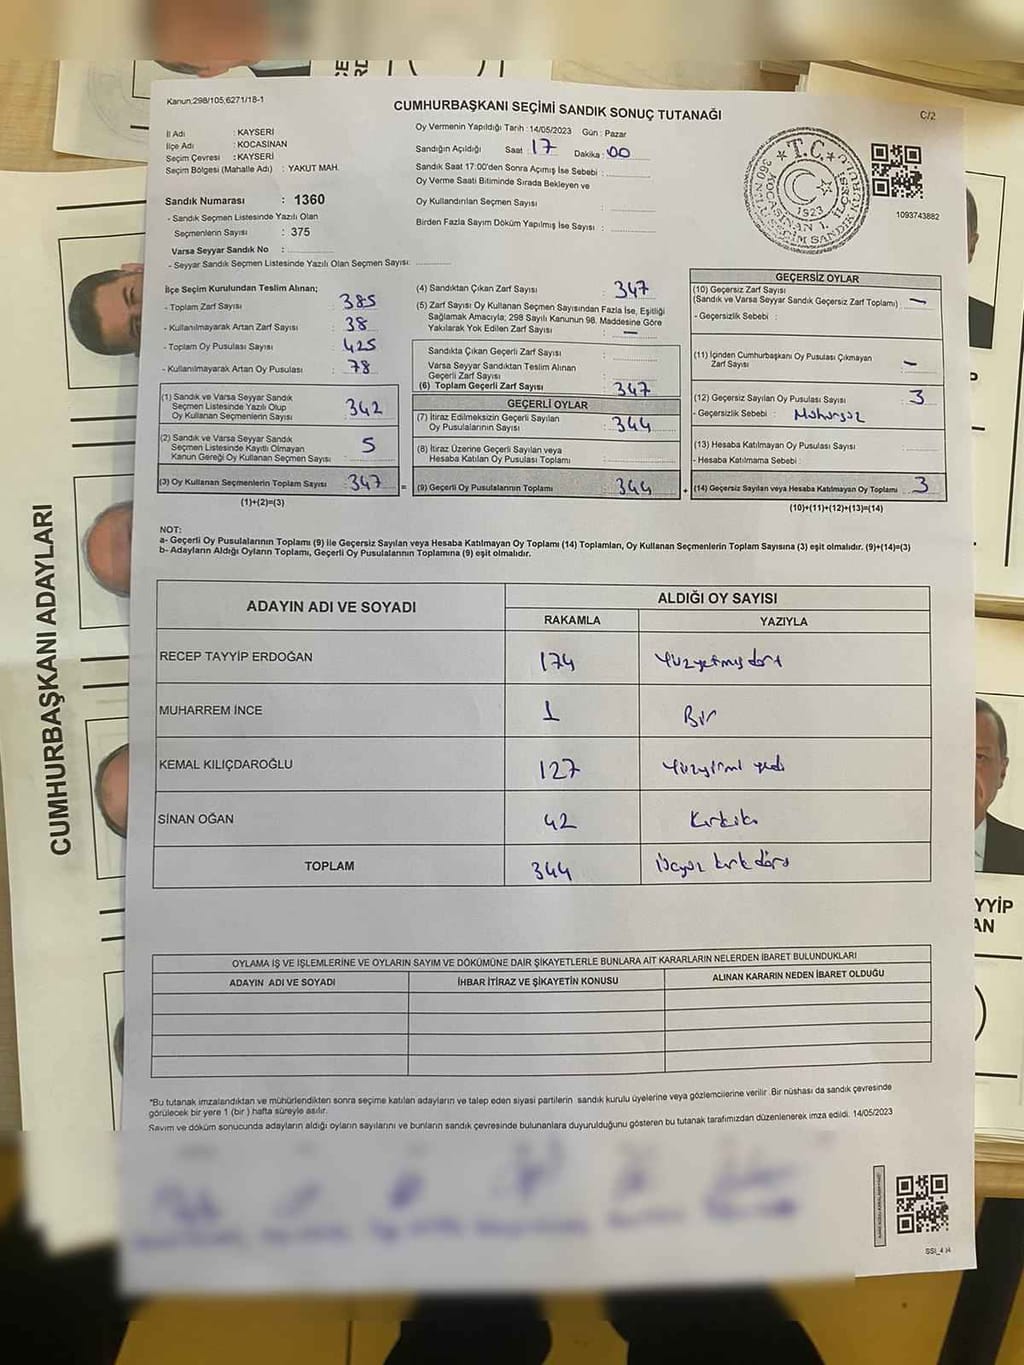 Kanun:298/105,6271/18-1
CUMHURBAŞKANI SEÇİMİ SANDIK SONUÇ TUTANAĞI
C/2
İl Adı : KAYSERİ
İlçe Adı : KOCASİNAN
Seçim Çevresi : KAYSERİ
Seçim Bölgesi (Mahalle Adı) : YAKUT MAH.
Sandık Numarası : 1360
- Sandık Seçmen Listesinde Yazılı Olan
Seçmenlerin Sayısı : 375
Varsa Seyyar Sandık No :
- Seyyar Sandık Seçmen Listesinde Yazılı Olan Seçmen Sayısı:
Oy Vermenin Yapıldığı Tarih : 14/05/2023 Gün : Pazar
Sandığın Açıldığı Saat : 17 Dakika : 00
Sandık Saat 17:00'den Sonra Açımış İse Sebebi :
Oy Verme Saati Bitiminde Sırada Bekleyen ve
Oy Kullandırılan Seçmen Sayısı :
Birden Fazla Sayım Döküm Yapılmış İse Sayısı :
T.C.
KOCASİNAN 1. İLÇE
1923
1093743882
İlçe Seçim Kurulundan Teslim Alınan;
- Toplam Zarf Sayısı : 385
- Kullanılmayarak Artan Zarf Sayısı : 38
- Toplam Oy Pusulası Sayısı : 425
- Kullanılmayarak Artan Oy Pusulası : 78
(1) Sandık ve Varsa Seyyar Sandık
Seçmen Listesinde Yazılı Olup
Oy Kullanan Seçmenlerin Sayısı : 342
(2) Sandık ve Varsa Seyyar Sandık
Seçmen Listesinde Kayıtlı Olmayan
Kanun Gereği Oy Kullanan Seçmen Sayısı : 5
(3) Oy Kullanan Seçmenlerin Toplam Sayısı : 347
(1)+(2)=(3)
(4) Sandıktan Çıkan Zarf Sayısı : 347
(5) Zarf Sayısı Oy Kullanan Seçmen Sayısından Fazla İse, Eşitliği
Sağlamak Amacıyla; 298 Sayılı Kanunun 98. Maddesine Göre
Yakılarak Yok Edilen Zarf Sayısı : —
Sandıkta Çıkan Geçerli Zarf Sayısı :
Varsa Seyyar Sandıktan Teslim Alınan
Geçerli Zarf Sayısı :
(6) Toplam Geçerli Zarf Sayısı : 347
GEÇERLİ OYLAR
(7) İtiraz Edilmeksizin Geçerli Sayılan
Oy Pusulalarının Sayısı : 344
(8) İtiraz Üzerine Geçerli Sayılan veya
Hesaba Katılan Oy Pusulası Toplamı :
= (9) Geçerli Oy Pusulalarının Toplamı : 344
GEÇERSİZ OYLAR
(10) Geçersiz Zarf Sayısı
(Sandık ve Varsa Seyyar Sandık Geçersiz Zarf Toplamı) : —
- Geçersizlik Sebebi :
(11) İçinden Cumhurbaşkanı Oy Pusulası Çıkmayan
Zarf Sayısı : —
(12) Geçersiz Sayılan Oy Pusulası Sayısı : 3
- Geçersizlik Sebebi : Mühürsüz
(13) Hesaba Katılmayan Oy Pusulası Sayısı :
- Hesaba Katılmama Sebebi :
+ (14) Geçersiz Sayılan veya Hesaba Katılmayan Oy Toplamı : 3
(10)+(11)+(12)+(13)=(14)
NOT:
a- Geçerli Oy Pusulalarının Toplamı (9) ile Geçersiz Sayılan veya Hesaba Katılmayan Oy Toplamı (14) Toplamları, Oy Kullanan Seçmenlerin Toplam Sayısına (3) eşit olmalıdır. (9)+(14)=(3)
b- Adayların Aldığı Oyların Toplamı, Geçerli Oy Pusulalarının Toplamına (9) eşit olmalıdır.
ADAYIN ADI VE SOYADI
ALDIĞI OY SAYISI
RAKAMLA YAZIYLA
RECEP TAYYİP ERDOĞAN 174 Yüzyetmişdört
MUHARREM İNCE 1 Bir
KEMAL KILIÇDAROĞLU 127 Yüzyirmi yedi
SİNAN OĞAN 42 Kırkiki
TOPLAM 344 Üçyüz kırk dört
OYLAMA İŞ VE İŞLEMLERİNE VE OYLARIN SAYIM VE DÖKÜMÜNE DAİR ŞİKAYETLERLE BUNLARA AİT KARARLARIN NELERDEN İBARET BULUNDUKLARI
ADAYIN ADI VE SOYADI İHBAR İTİRAZ VE ŞİKAYETİN KONUSU ALINAN KARARIN NEDEN İBARET OLDUĞU
*Bu tutanak imzalandıktan ve mühürlendikten sonra seçime katılan adayların ve talep eden siyasi partilerin sandık kurulu üyelerine veya gözlemcilerine verilir. Bir nüshası da sandık çevresinde
görülecek bir yere 1 (bir) hafta süreyle asılır.
Sayım ve döküm sonucunda adayların aldığı oyların sayılarını ve bunların sandık çevresinde bulunanlara duyurulduğunu gösteren bu tutanak tarafımızdan düzenlenerek imza edildi. 14/05/2023
CUMHURBAŞKANI ADAYLARI
YYİP
AN